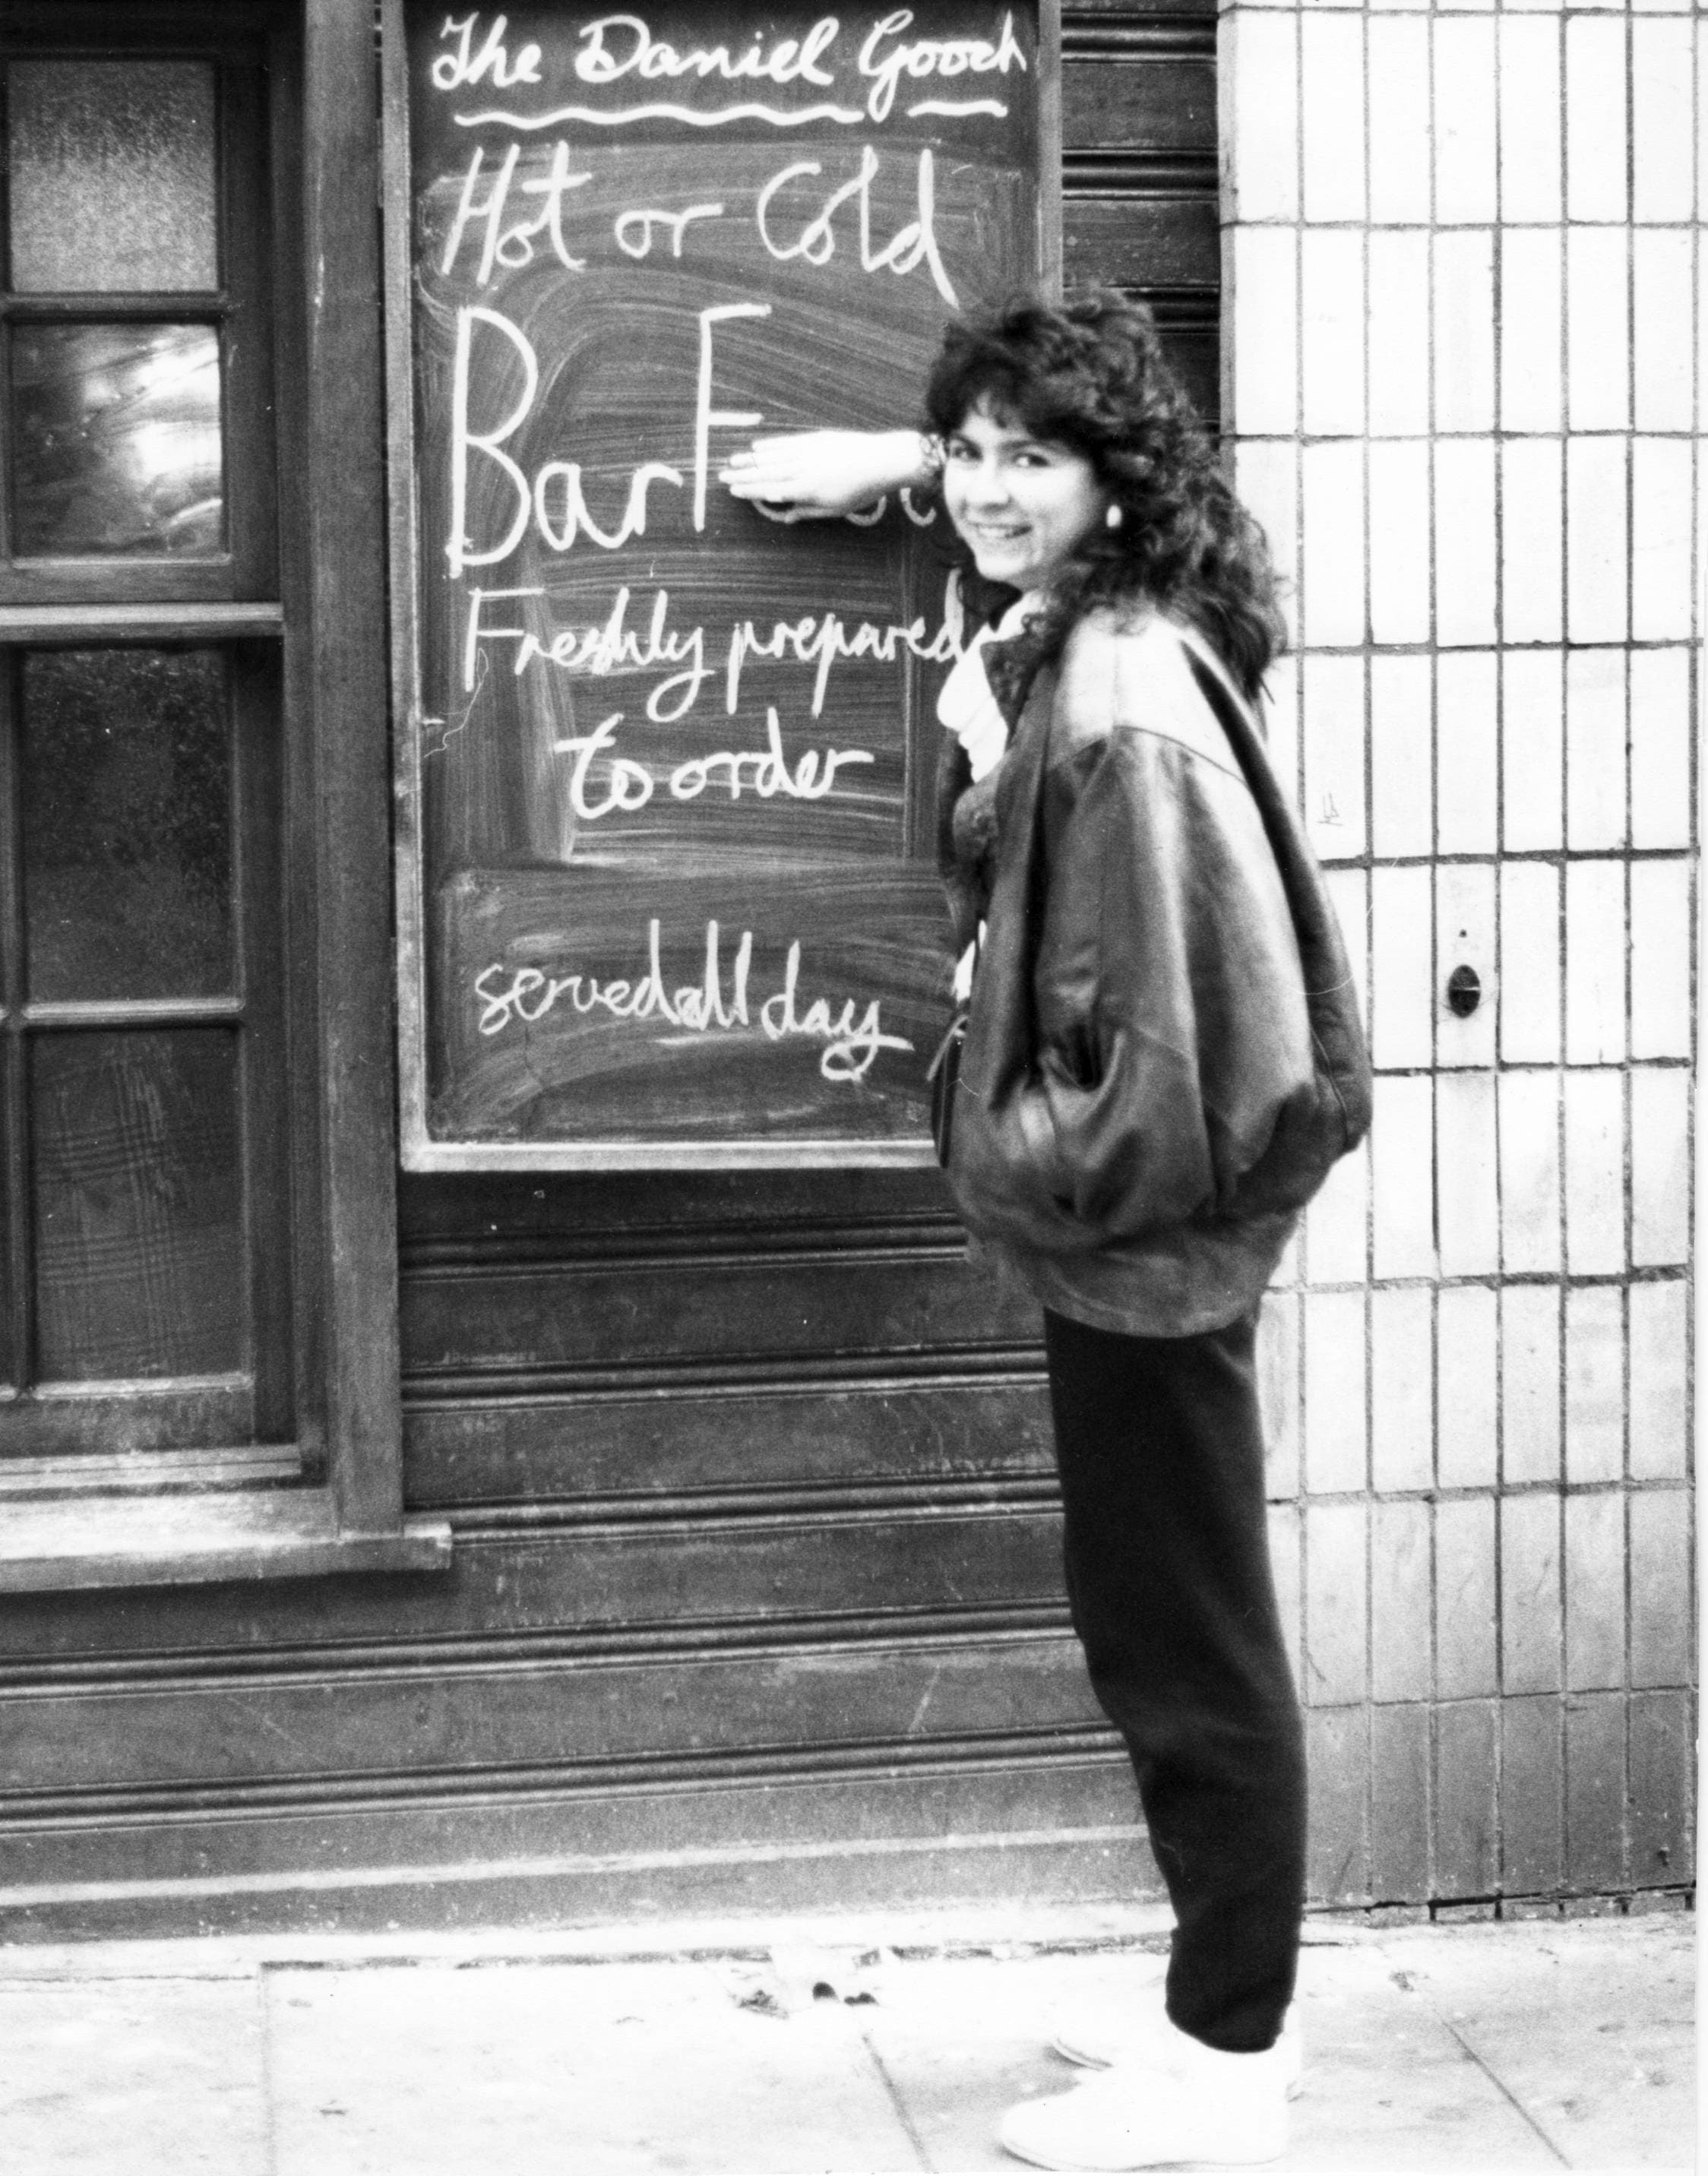 The Daniel Gooch
Hot or Cold
Bar F
Freshly prepared
to order
served all day